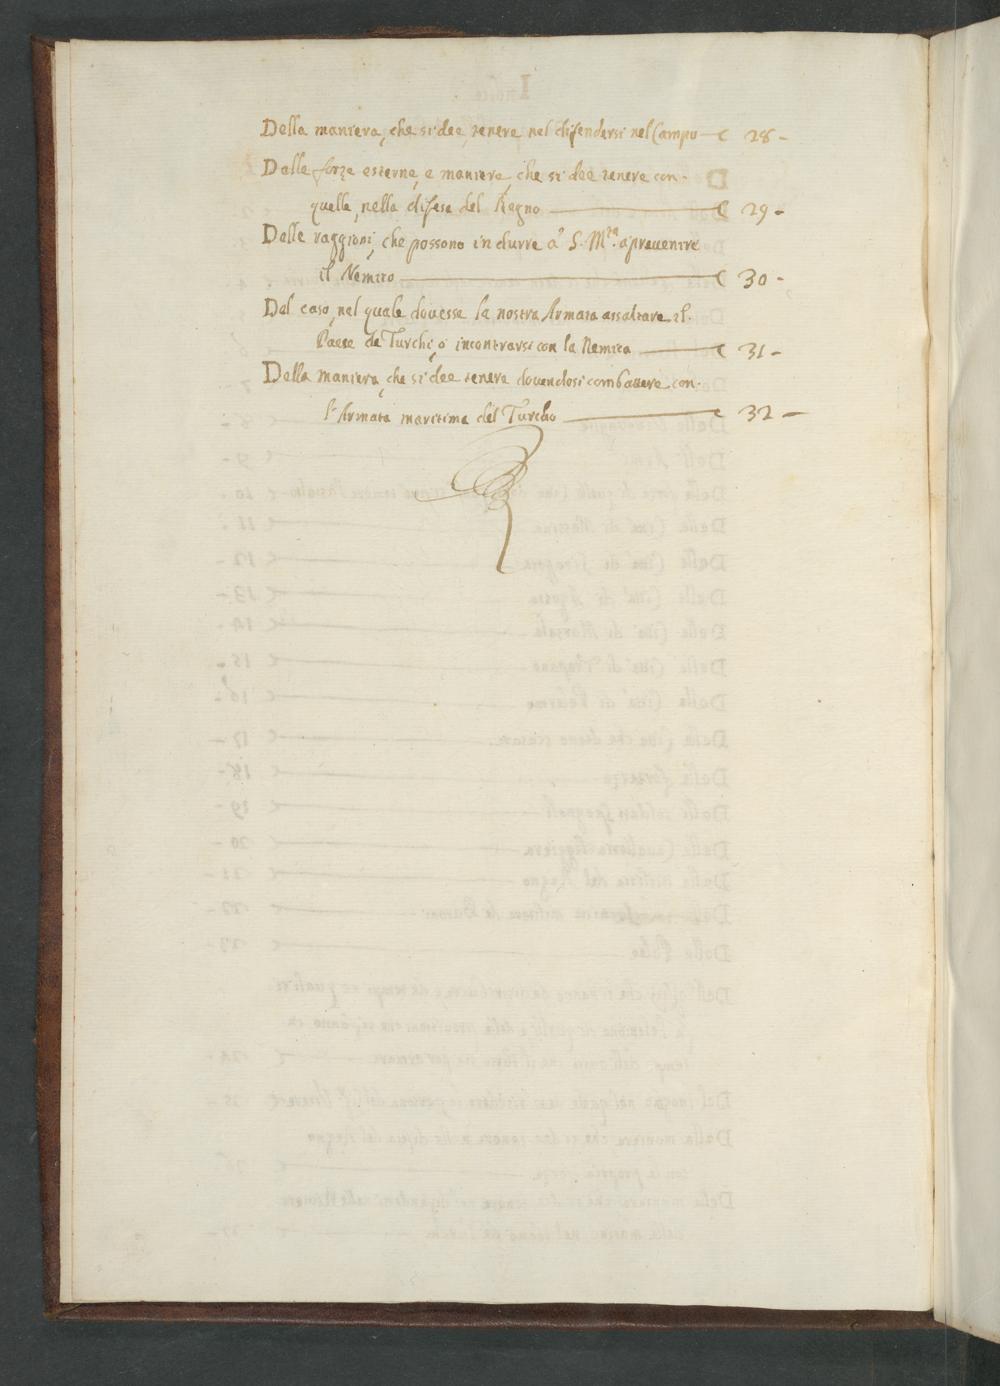 Della maniera, che si dee tenere nel difendersi nel Campo — c 28 -
Dalle forze esterne, e maniere, che si dee tenere con
quelle, nella difesa del Regno — c 29 -
Delle raggioni, che possono indurre a' S. M.tà a preuenire
il Nemico — c 30 -
Del caso, nel quale douesse la nostra Armata assaltare il
Paese de Turchi, o incontrarsi con la Nemica — c 31 -
Della maniera, che si dee tenere douendosi combattere con
l'Armata maritima del Turcho — c 32 -